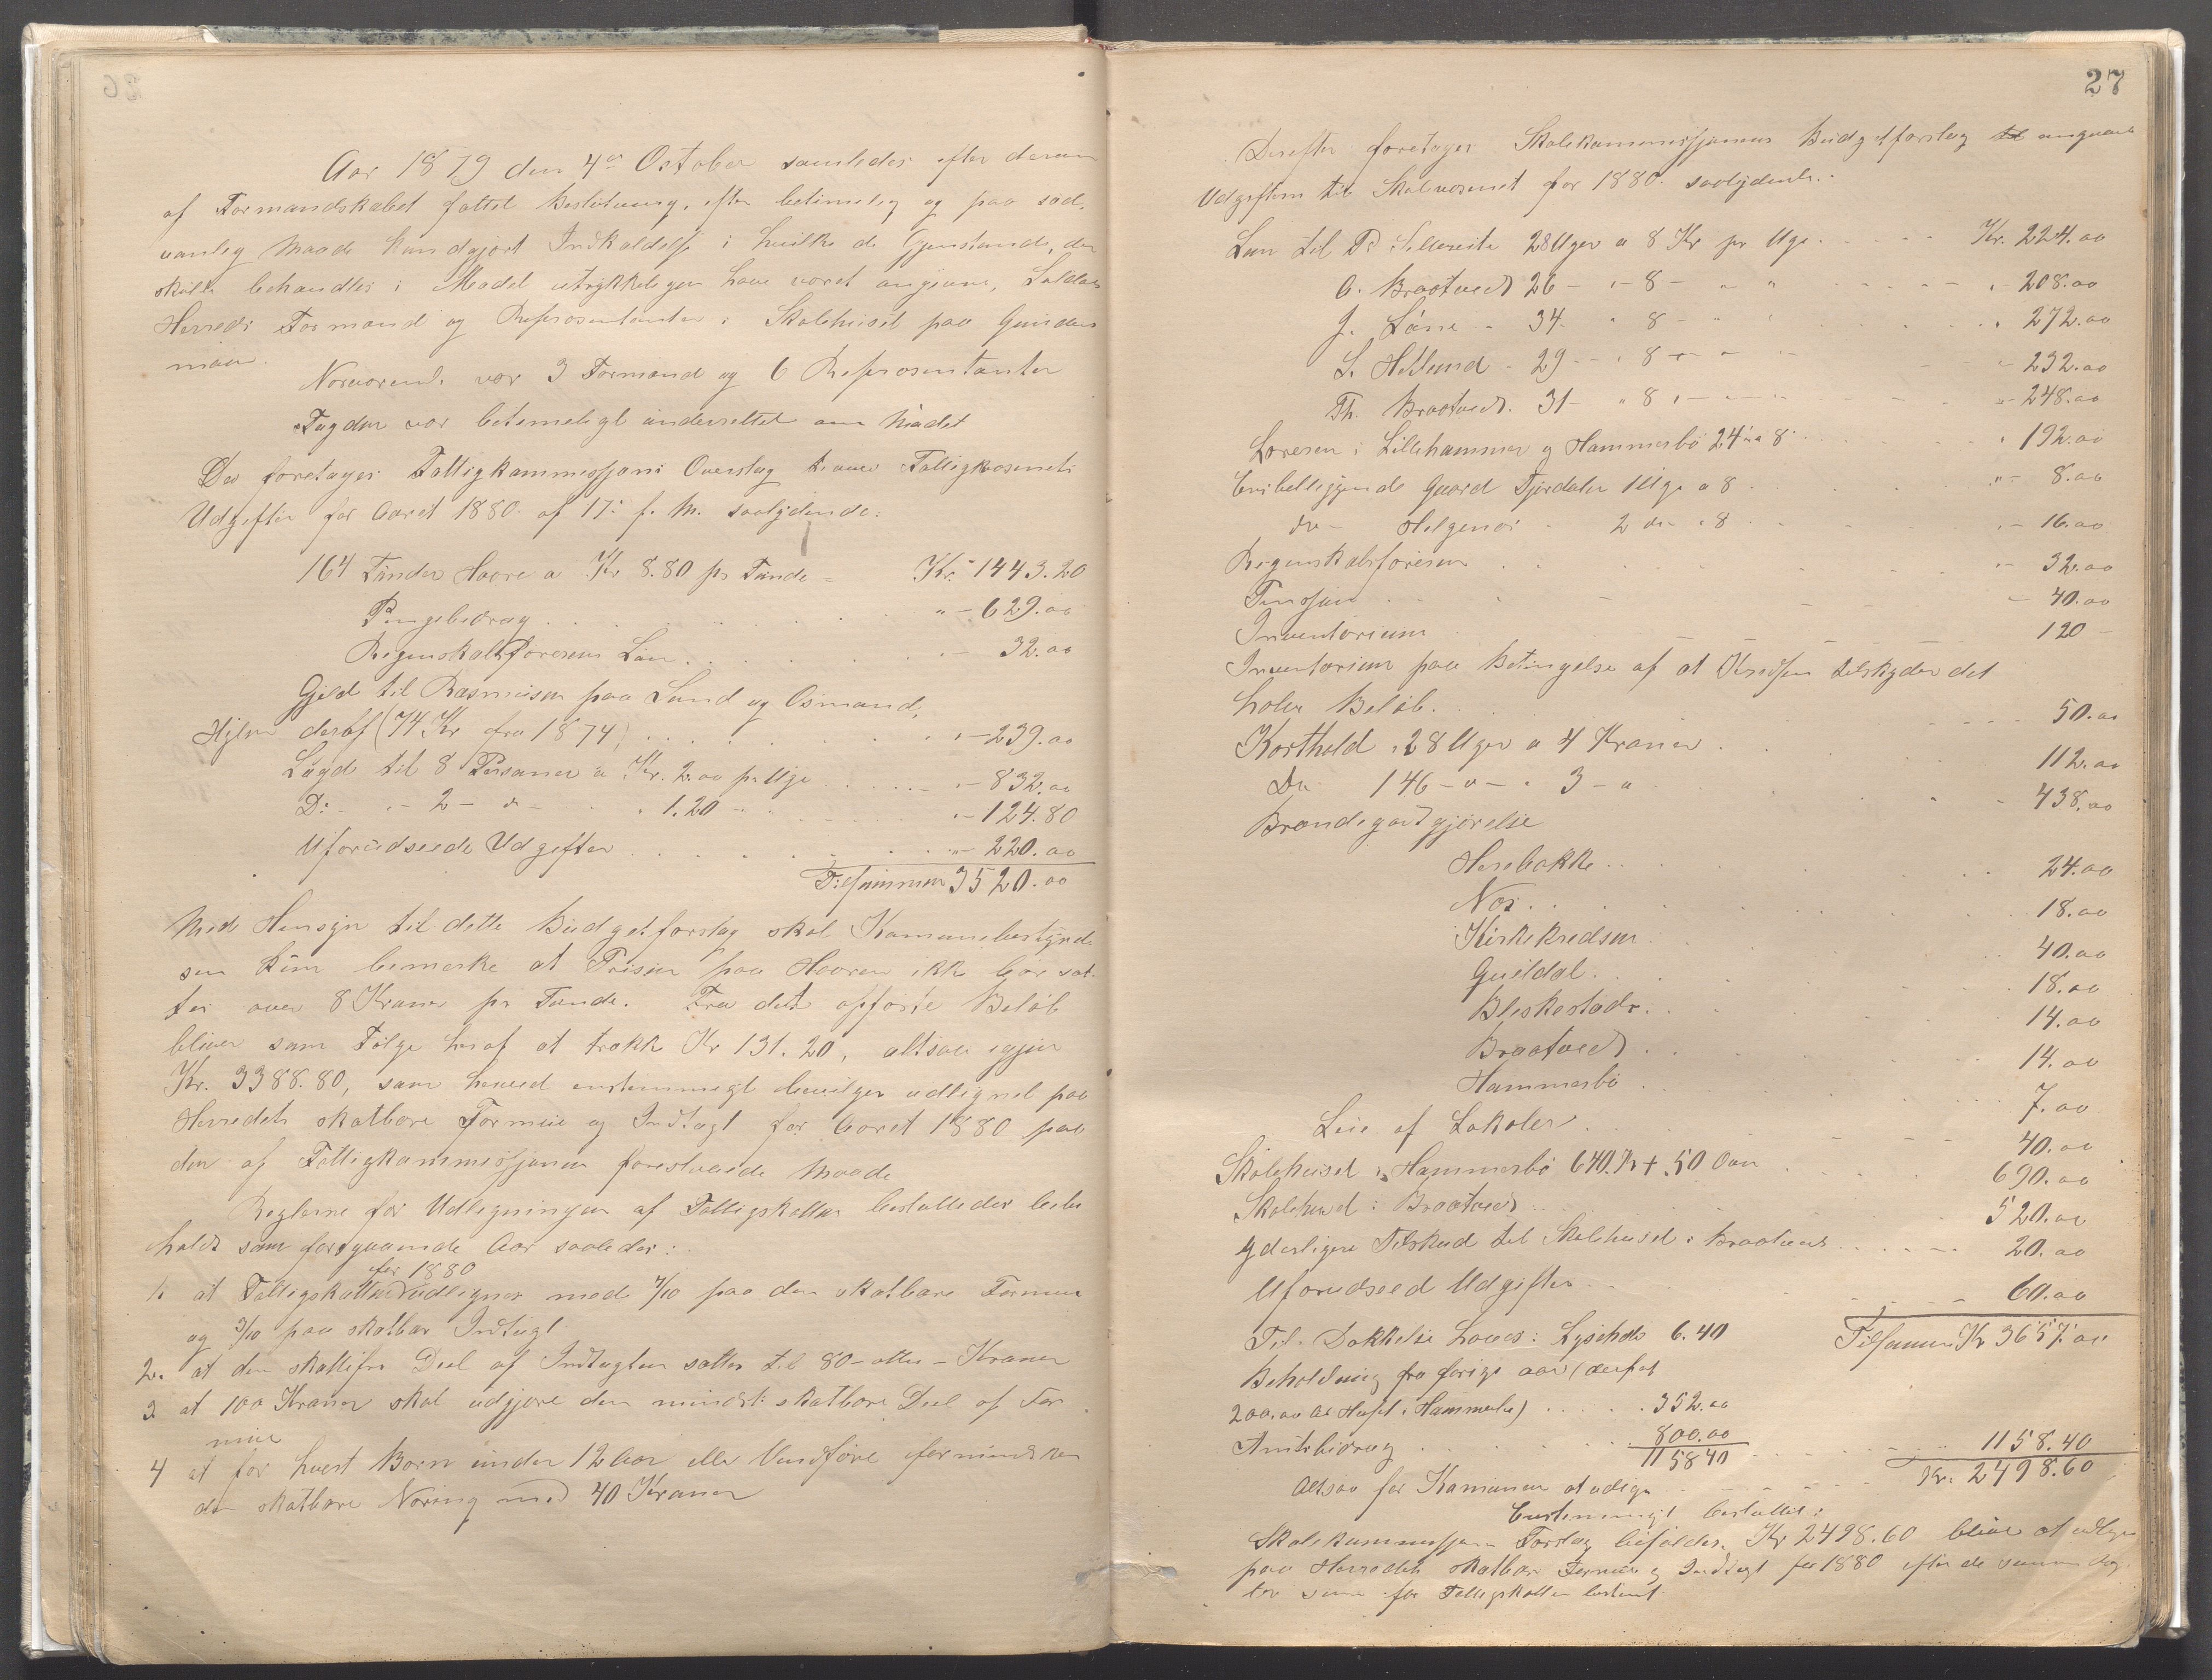 Aar 1879 den 4de October samledes efter deraw
af Formandskabet fattet Beslutning, efter betimelig og paa sæd-
vanlig Maade kundgjort Indkaldelse i hvilke de Gjenstande, der
skulle behandles i Mødet utrykkeligen have været angivne, Suldals
Herreds Formænd og Repræsentanter i Skolehuset paa Guiders
moen.
Nærværende var 3 Formænd og 6 Repræsentanter
Fogden var betimeligt underrettet om Mødet
Der foretoges Fattigkommissjons Overslag over Fattigvæsenets
Udgifter for Aaret 1880. af 17. f. M. saalydende:
164 Tønder Havre a Kr 8.80 pr Tønde - Kr. 1443.20
Pengebidrag " - 629.00
Regnskabsførerens Løn " - 32.00
Gjeld til Rasmusen paa Sund og Osmund,
Hylen deraf (74 Kr fra 1874) " - 239.00
Lægd til 8 Personer a Kr. 2.00 pr Uge " - 832.00
Do - " - 2 - do - " 1.20 - " - 124.80
Uforudseede Udgifter " - 220.00
Tilsammen 3520.00
Med Hensyn til dette Budgetforslag skal Kommunebestyrel
sen kun bemærke at Prisen paa Havren ikke bør sæt
tes over 8 Kroner pr Tønde. Fra det opførte Beløb
bliver som Følge heraf at trække Kr 131.20, altsaa igjen
Kr. 3388.80, som herved enstemmigt bevilges udlignet paa
Herredets skatbare Formue og Indtægt for Aaret 1880 paa
den af Fattigkommissjonen foreslaaede Maade
Reglerne for Udligningen af Fattigskatten besluttedes beibe
holdt som foregaaende Aar saaledes:
for 1880
1. at Fattigskatten udlignes med 7/10 paa den skatbare Formue
og 3/10 paa skatbar Indtægt.
2. at den skattefri Deel af Indtægten sættes til 80 - otti - Kroner
3 at 100 Kroner skal udgjøre den mindste skatbare Deel af For
mue
4 at for hvert Barn under 12 Aar eller Vanføre formindskes
den skatbare Næring med 40 Kroner
27
Derefter foretoges Skolekommissjonens Budgetforslag angaaende
Udgifterne til Skolevæsenet for 1880. saalydende:
Løn til P. 28 Uger a 8 Kr pr Uge. Kr. 224.00
O. Braatveit 26 - " - 8 - " " " - 208.00
J. Løne - 34 - " 8 - " " " 272.00
S. Helland - 29 - " 8 - " - 232.00
Th. Braatveit. 31 - " 8 " - " - 248.00
Læreren i Lillehammer og Hammerbø 24 " a 8 " 192.00
Enkeltliggende Gaard Fjordalen 1 Uge a 8 " - 8.00
do - Helgenæs - 2 do " 8 " - 16.00
Regnskabsføreren " - 32.00
Pensjon - 40.00
Inventarium 120 -
Inventarium paa Betingelse af at tilskyder det
halve Beløb. 50.00
Kosthold i 28 Uger a 4 Kroner 112.00
Do 146 - " - " 3 - " - 438.00
Brændegodtgjørelse
Herabakke 24.00
Næs 18.00
Kirkekredsen 40.00
Guildal 18.00
Bleskestad 14.00
Braatveit 14.00
Hammerbø 7.00
Leie af Lokaler 40.00
Skolehuset i Hammerbø 640 Kr + 50 690.00
Skolehuset i Braatveit 520.00
Yderligere Tilskud til Skolehuset i Braatveit 20.00
Uforudseed Udgifter 60.00
Tilsammen Kr 3657.00
Til Dækkelse haves: Lysehds 6.40
Beholdning fra forige aar (deraf at
200.00 til Huset i Hammerbø) 352.00
Amtsbidrag 800.00
1158 40 1158.40
Altsaa for Kommunen at udligne Kr. 2498.60
Enstemmigt besluttet:
Skolekommissjonens Forslag bifaldes. Kr 2498.60 bliver at udligne
paa Herredets skatbare Formue og Indtægt for 1880 efter de samme Reg-
ler som for Fattigskatten bestemt.